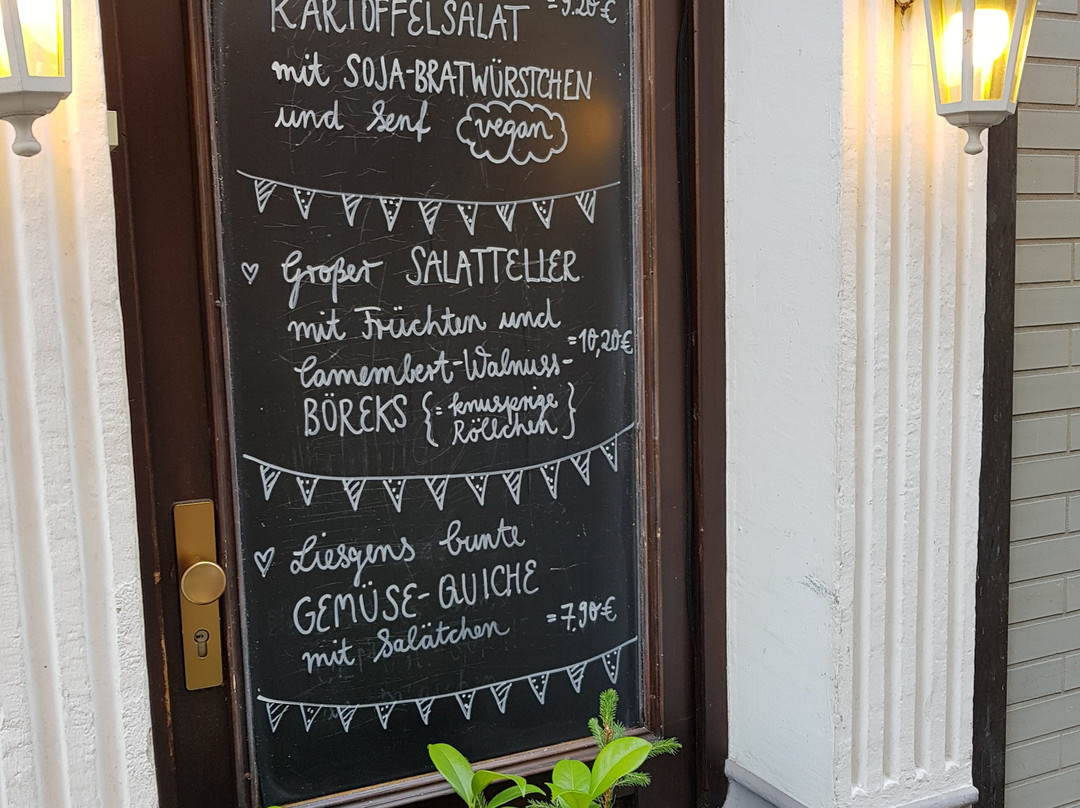 KARTOFFELSALAT =9.20€
mit SOJA-BRATWÜRSTCHEN
und Senf vegan
♡ Großer SALATTELLER
mit Früchten und
=10,20€
Camembert-Walnuss-
BÖREKS {= knusprige
Röllchen}
♡ Liesgens bunte
GEMÜSE-QUICHE
=7,90€
mit Salätchen